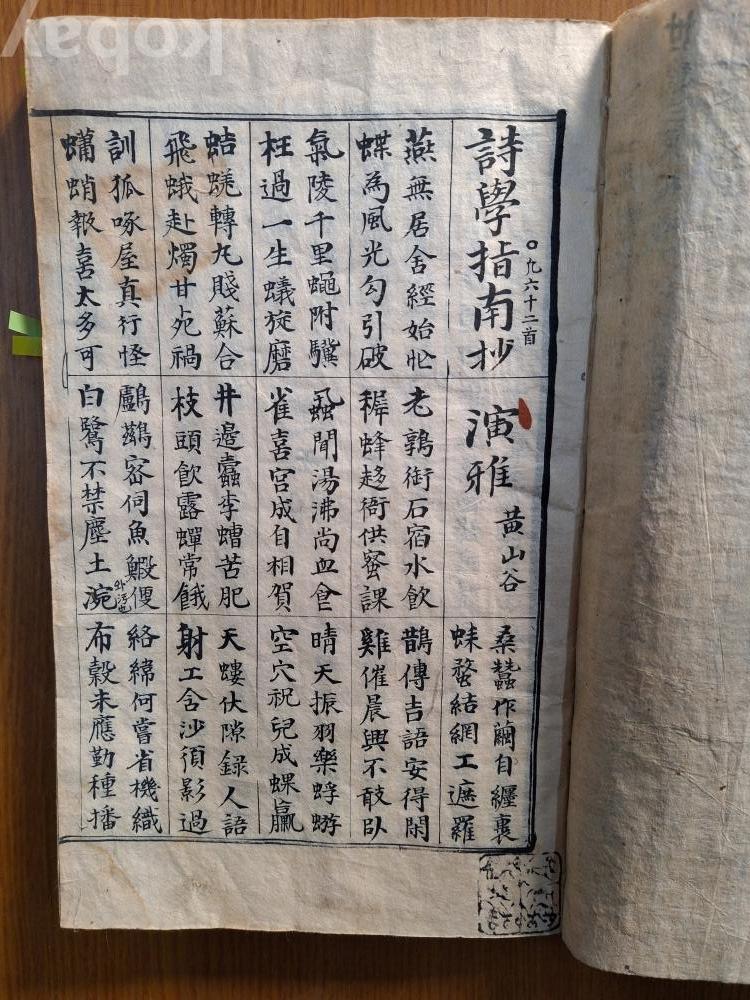 kobay
詩學指南抄
凡六十二首
演雅
黃山谷
桑蠶作繭自纏裹
蛛蝥結網工遮羅
燕無居舍經始忙
蝶為風光勾引破
老鶉銜石宿水飲
稺蜂趍衙供蜜課
鵲傳吉語安得閑
雞催晨興不敢臥
氣陵千里蠅附驥
枉過一生蟻旋磨
蝨聞湯沸尚血食
雀喜宮成自相賀
晴天振羽樂蜉蝣
空穴祝兒成蜾蠃
蛣蜣轉丸賤蘇合
飛蛾赴燭甘死禍
井邊蠹李螬苦肥
枝頭飮露蟬常餓
天螻伏隙錄人語
射工含沙須影過
訓狐啄屋真行怪
蠨蛸報喜太多可
鸕鶿宻伺魚鰕便
白鷺不禁塵土涴
絡緯何嘗省機織
布穀未應勤種播